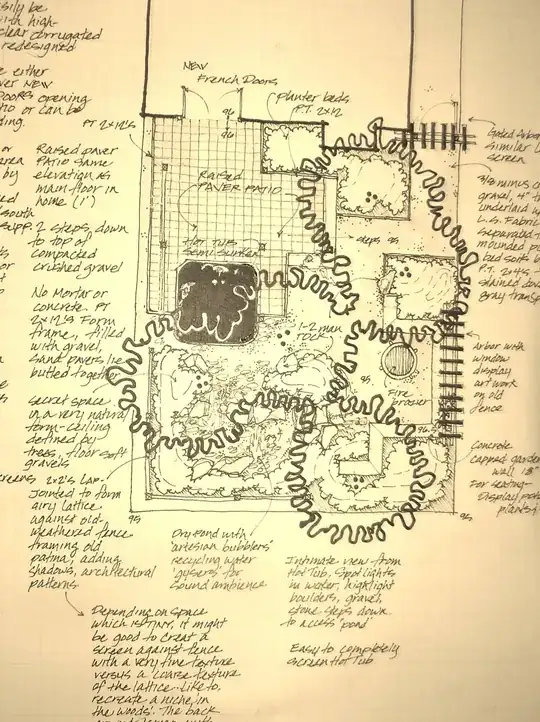 sily be
ith high-
clear corrugated
redesigned
either
ver NEW
DOORS opening
tio or can be
ding.
NEW
French Doors
Planter beds
P.T. 2x12
PT 2x12's
96
96
Raised
PAVER PATIO
Hot Tub
semi sunken
steps
95
1-2 man
rock
Fire
brasier
95
96.5
95
95
or
area
by
ed
south
supp.
Raised paver
Patio same
elevation as
main floor in
home (1')
2 steps, down
to top of
compacted
crushed gravel
No Mortar or
concrete. PT
2x12's Form
frame, filled
with gravel,
sand pavers lie
butted together
secret space
in a very natural
form-ceiling
defined by
trees, floor soft
gravels
screens 2x2's Lap-
Jointed to form
airy lattice
against old
weathered fence
framing old
patina, adding
shadows, architectural
patterns
Depending on space
which is TINY, it might
be good to creat a
screen against fence
with a very fine texture
versus a coarse texture
of the lattice. Like to,
recreate a niche 'in
the woods'. The back
Dry Pond with
'artesian bubblers'
recycling water
'gysers' for
sound ambience
Intimate view from
Hot Tub, Spot lights
in water, highlight
boulders, gravel,
stone steps down
to access 'pond'
Easy to completely
screen Hot Tub
Gated Arbor
similar L
screen
3/8 minus c
gravel, 4" t
underlaid w
L.S. Fabric
separated
mounded p
bed soils b
P.T. 2x4s -
stained dow
gray transp
Arbor with
window
display
art work
on old
fence
Concrete
capped garde
wall 18"
For seating-
Display pot
plants +